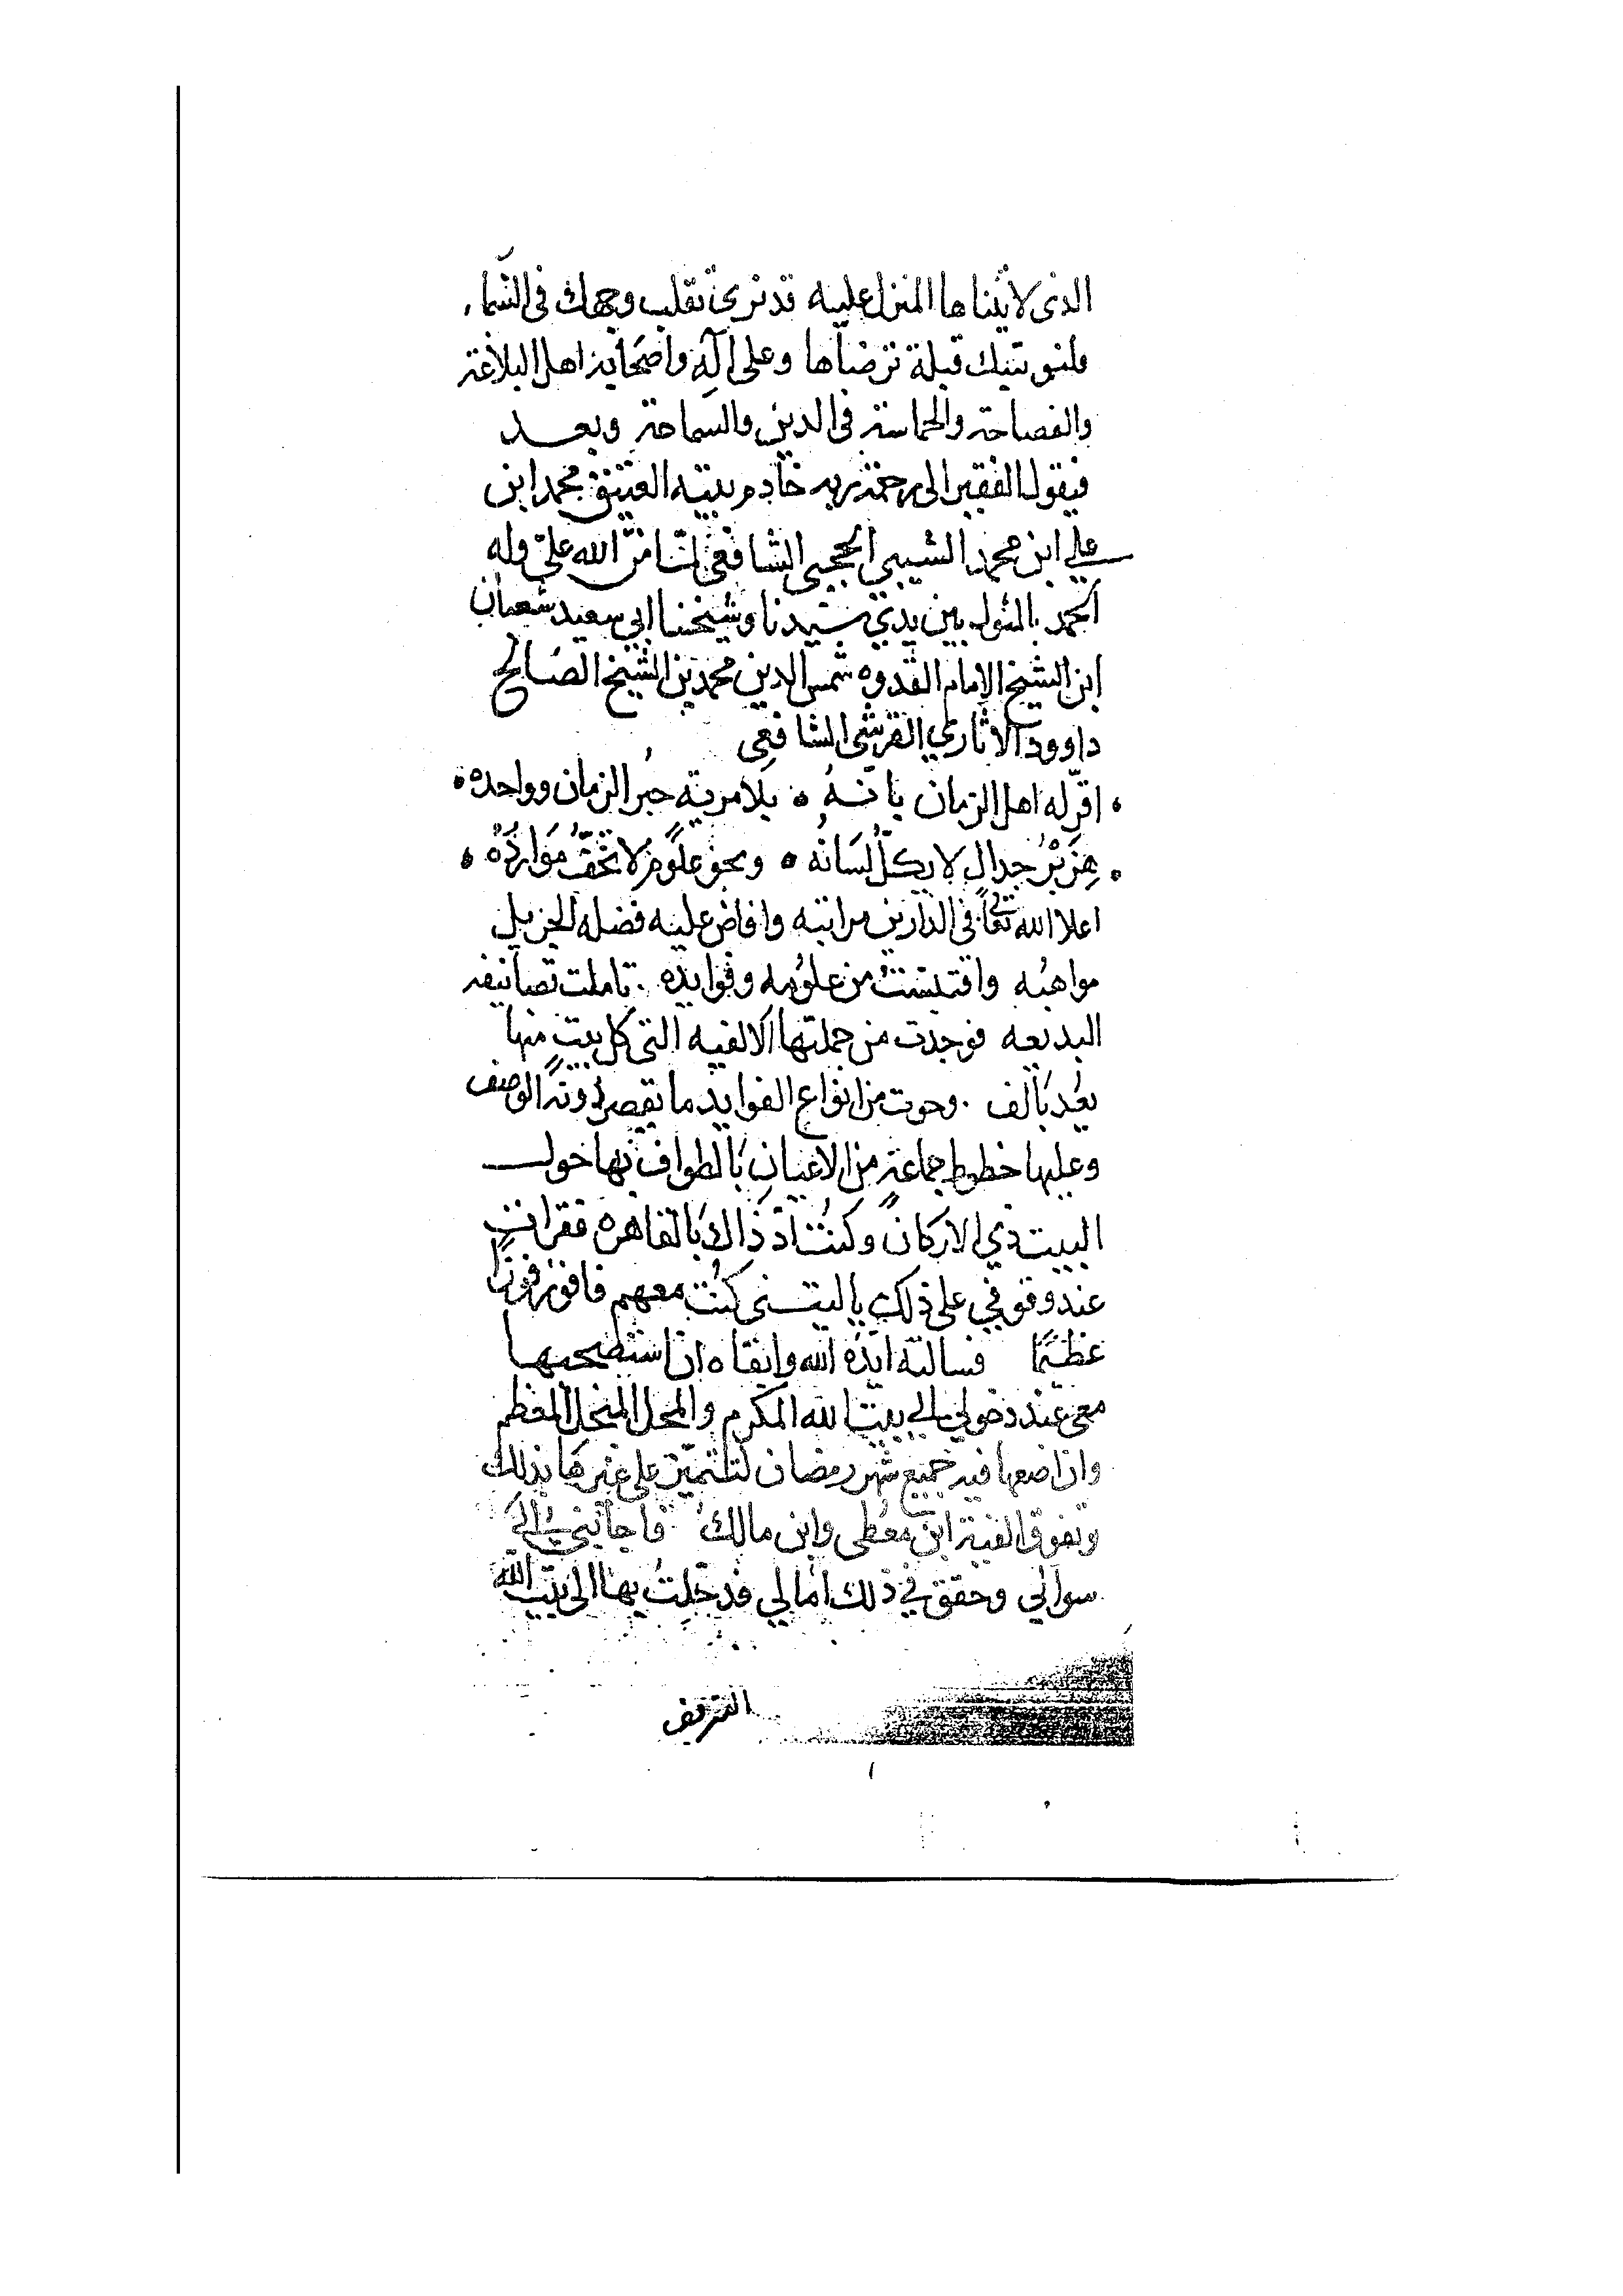 الذى لا يتناها المنزل عليه قد نرى تقلب وجهك فى السّماء
فلنولينك قبلة ترضاها وعلى آلِه واصحابه اهل البلاغة
والفصاحة والحماسة فى الدين والسماحة وبعــد
فيقول الفقير الى رحمة ربه خادم بيته العتيق محمد ابن
علي ابن محمد الشيبي الحجبى الشافعى لمّا منّ الله علىّ وله
الحمد بالمثول بين يدي سيدنا وشيخنا ابي سعيد شعبان
ابن الشيخ الامام القدوه شمس الدين محمد بن الشيخ الصالح
داوود الاثاري القرشى الشافعى
اقرّ له اهل الزمان بانـه • بلا مرية حبرُ الزمان وواحده •
هِزَبْرُ جدال لا يكلّ لسَانُه • وبحر علوم لا تخفّ مَوَاردُهْ •
اعلا الله تعالى فى الدارين مراتبه وافاض عليه فضله الجزيل
مواهبُه واقتبستُ من علومه وفوايده . تاملت تصانيفه
البديعه فوجدت من جملتها الالفيه التى كل بيتٍ منها
يعُد بالف . وحوت من انواع الفوايد ما يقصر دونه الوصف
وعليها خطوط جماعة من الاعيان بالطواف بها حولــ
البيت ذي الاركان وكنت اذ ذاك بالقاهره فقرات
عند وقوفي على ذلك ياليتـنى كنت معهم فافوز فوزًا
عظيمًا فسالته ايّده الله وابقاه ان استصحبهـا
معى عند دخولي الي بيت الله المكرم والمحل المبجل المعظم
وان اضعها فيه جميع شهر رمضان لتتميّز على غيرها بذلك
وتفوق الفية ابن معُطى وابن مالك فاجابنى الي
سوالي وحقق في ذلك امالي فدخلتُ بها الى بيت الله